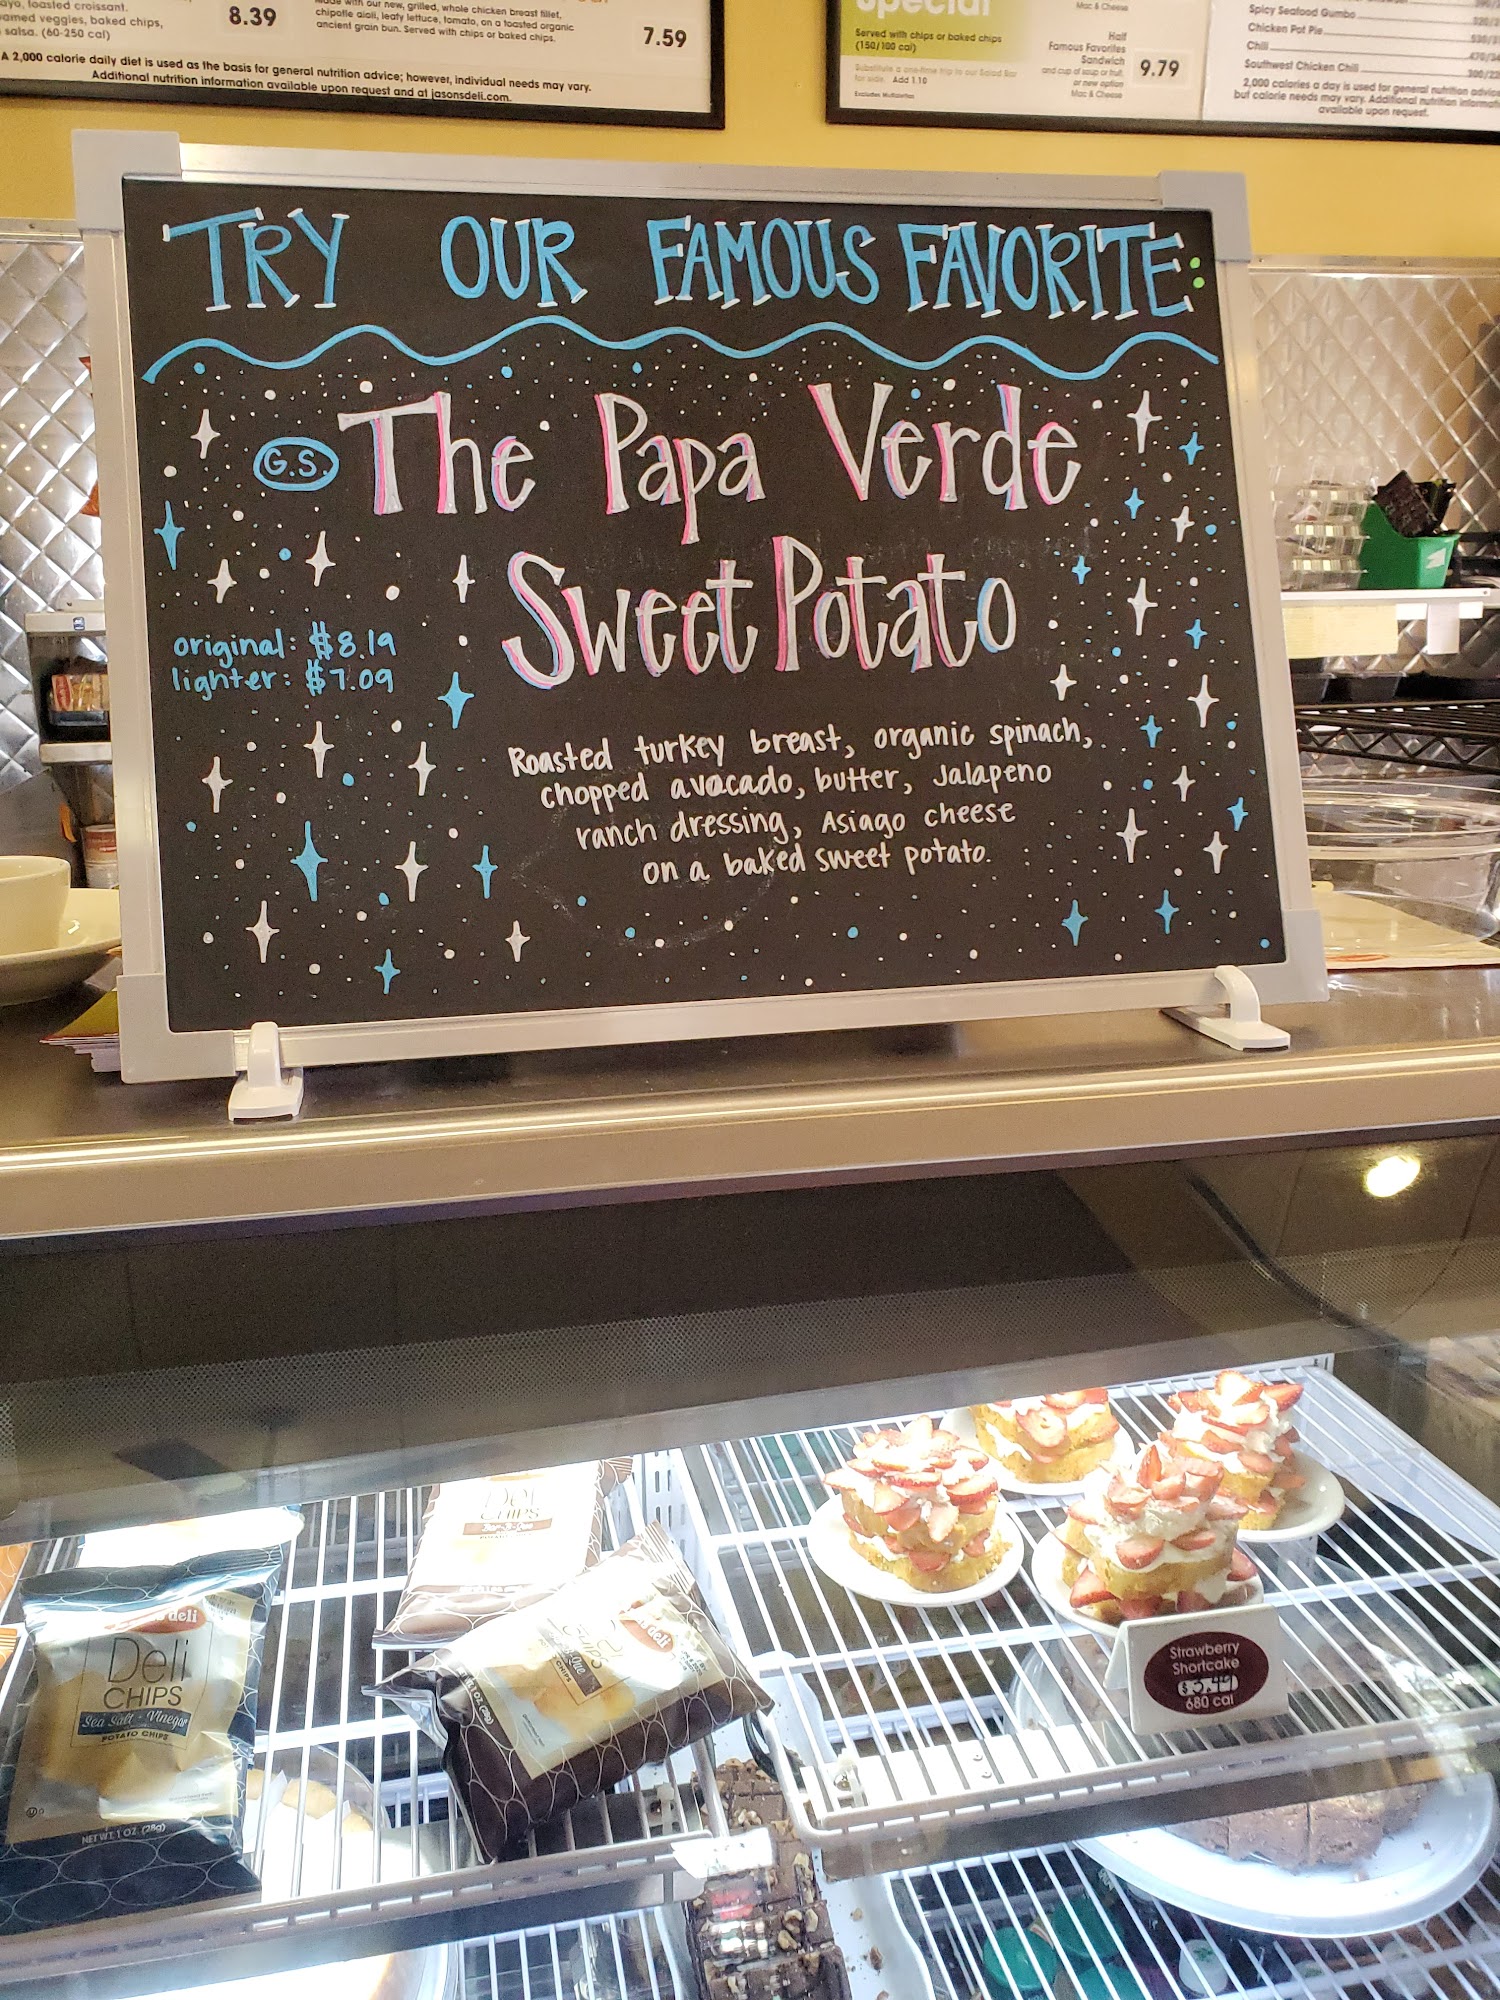 toasted croissant.
veggies, baked chips,
salsa. (60-250 cal)
8.39
with our new, grilled, whole chicken breast fillet,
chipotle aioli, leafy lettuce, tomato, on a toasted organic
ancient grain bun. Served with chips or baked chips.
7.59
A 2,000 calorie daily diet is used as the basis for general nutrition advice; however, individual needs may vary.
Additional nutrition information available upon request and at jasonsdeli.com.
Special
Served with chips or baked chips
(150/100 cal)
Substitute a one-time trip to our Salad Bar
for side. Add 1.10
Excludes Muffalettas
Mac & Cheese
Half
Famous Favorites
Sandwich
and cup of soup or fruit,
or new option
Mac & Cheese
9.79
Spicy Seafood Gumbo
Chicken Pot Pie
Chili
Southwest Chicken Chili
2,000 calories a day is used for general nutrition advice
but calorie needs may vary. Additional nutrition
available upon request.
TRY OUR FAMOUS FAVORITE:
G.S. The Papa Verde
Sweet Potato
original: $8.19
lighter: $7.09
Roasted turkey breast, organic spinach,
chopped avocado, butter, Jalapeno
ranch dressing, Asiago cheese
on a baked sweet potato.
Deli
CHIPS
POTATO CHIPS
deli
deli
Deli
CHIPS
Sea Salt - Vinegar
POTATO CHIPS
NET WT. 1 OZ. (28g)
Strawberry
Shortcake
680 cal